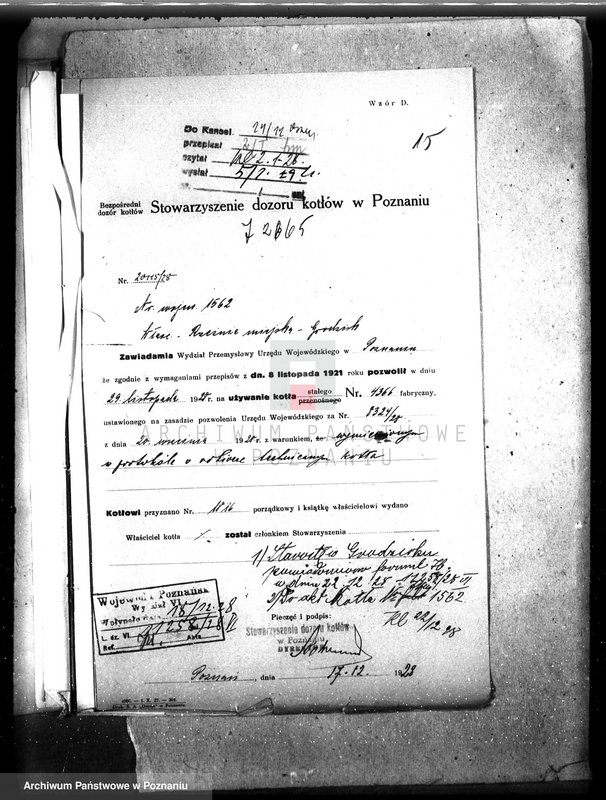 Wzór D.
15
Do Kancel. 29/12
przepisał
czytał 2.1.28.
wysłał 5/1. 29
Bezpośredni dozór kotłów Stowarzyszenie dozoru kotłów w Poznaniu
J 2865
Nr. 20115/28
Nr. wojew. 1562
Właśc. - Rzeźnia miejska - Grodzisk
Zawiadamia Wydział Przemysłowy Urzędu Wojewódzkiego w Poznaniu
że zgodnie z wymaganiami przepisów z dn. 8 listopada 1921 roku pozwolił w dniu
29 listopada 1928 r. na używanie kotła stałego przenośnego Nr. 4366 fabryczny,
ustawionego na zasadzie pozwolenia Urzędu Wojewódzkiego za Nr. 8324/28
z dnia 20 września 1928 r. z warunkiem, że wymienionym
w protokóle o odbiorze technicznym kotła
Kotłowi przyznano Nr. 1816 porządkowy i książkę właścicielowi wydano
Właściciel kotła został członkiem Stowarzyszenia
1) Starostwo Grodzisku
powiadomiono formul. H.
w dniu 22.12.28 11258/28 VI
2) Do akt Kotła 1562
Kl 22/12 28
Wojewoda Poznański
Wydział VI
Wpłynęło dnia 18/12.28
L. dz. VI 11258/28 VI
Ref. Akta
Pieczęć i podpis:
Stowarzyszenie dozoru kotłów
w Poznaniu
DYREKTOR
Poznań, dnia 17.12. 1928
ARCHIWUM PAŃSTWOWE
POZNANIU
Archiwum Państwowe w Poznaniu